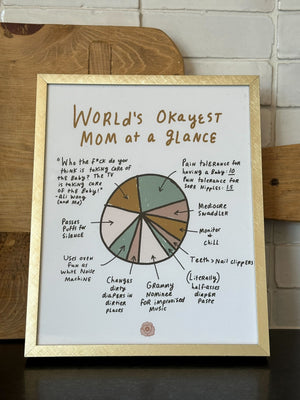 WORLD'S OKAYEST
MOM at a GLANCE
"Who the f*ck do you
think is taking care of
the Baby? The TV
is taking care
of the Baby!"
- Ali Wong
(and me)
Pain tolerance for
having a Baby: 10
Pain tolerance for
sore nipples: 15
Mediocre
swaddler
Monitor
+
chill
Teeth > Nail clippers
(Literally)
half-asses
diaper
paste
Grammy
Nominated
for improvised
music
Changes
dirty
diapers in
dirtier
places
Uses oven
fan as
white Noise
Machine
Passes
Puffs for
Silence